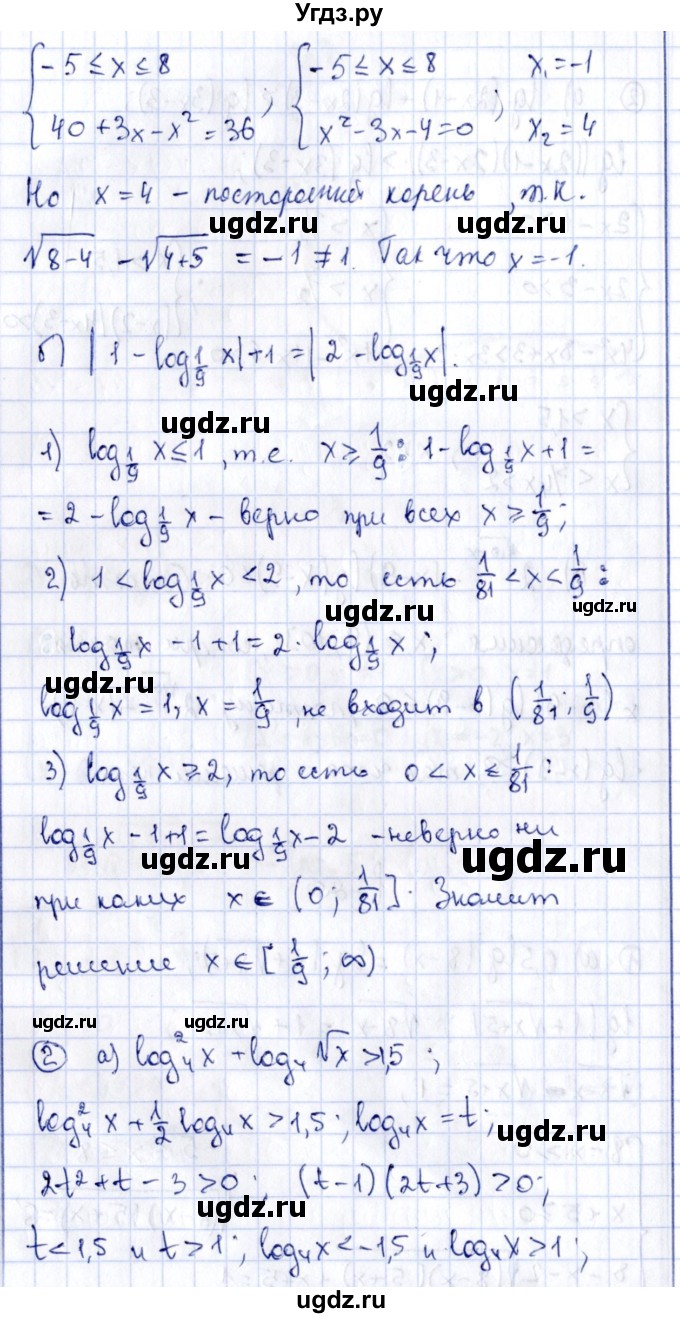 Угдз.ру
{ -5 ≤ x ≤ 8 ; { -5 ≤ x ≤ 8 ; x₁ = -1
{ 40 + 3x - x² = 36 { x² - 3x - 4 = 0 x₂ = 4
Но x = 4 - посторонний корень, т.к.
ugdz.ru ugdz.ru
√(8-4) - √(4+5) = -1 ≠ 1. Так что x = -1.
б) |1 - log_{1/9} x| + 1 = |2 - log_{1/9} x|.
ugdz.ru
ugdz.ru
1) log_{1/9} x ≤ 1, т.е. x ≥ 1/9: 1 - log_{1/9} x + 1 =
= 2 - log_{1/9} x - верно при всех x ≥ 1/9;
2) 1 < log_{1/9} x < 2, то есть 1/81 < x < 1/9:
ugdz.ru
ugdz.ru
log_{1/9} x - 1 + 1 = 2 · log_{1/9} x;
ugdz.ru
log_{1/9} x = 1, x = 1/9, не входит в (1/81; 1/9)
3) log_{1/9} x ≥ 2, то есть 0 < x ≤ 1/81:
log_{1/9} x - 1 + 1 = log_{1/9} x - 2 - неверно ни
ugdz.ru ugdz.ru
при каких x ∈ (0; 1/81]. Значит
решение x ∈ [1/9; ∞)
ugdz.ru ugdz.ru
② а) log₄² x + log₄ √x > 1,5;
ugdz.ru
log₄² x + 1/2 log₄ x > 1,5; log₄ x = t;
ugdz.ru
2t² + t - 3 > 0; (t-1)(2t+3) > 0;
ugdz.ru
t < 1,5 и t > 1; log₄ x < -1,5 и log₄ x > 1;
ugdz.ru